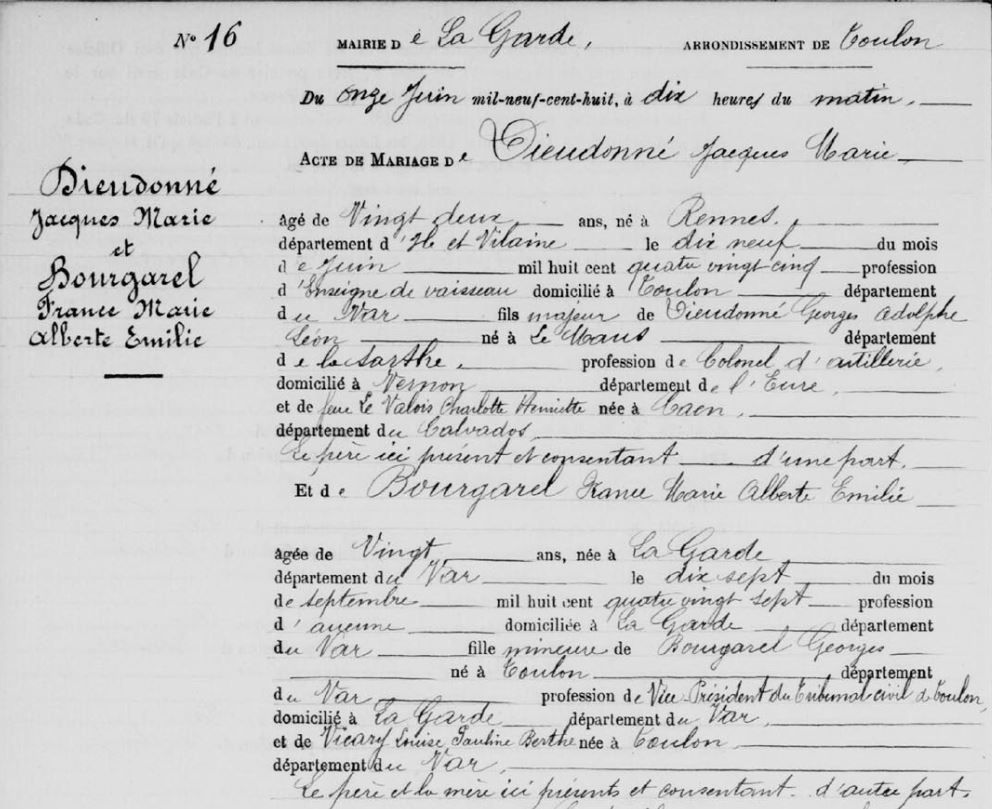 N° 16
MAIRIE De La Garde, ARRONDISSEMENT DE Toulon
Du onze Juin mil-neuf-cent-huit, à dix heures du matin.
ACTE DE MARIAGE De Dieudonné Jacques Marie
Dieudonné
Jacques Marie
et
Bourgarel
France Marie
Alberte Emilie
âgé de Vingt deux ans, né à Rennes,
département d'Ile et Vilaine le dix neuf du mois
de Juin mil huit cent quatre vingt cinq profession
d'Enseigne de vaisseau domicilié à Toulon département
du Var fils majeur de Dieudonné Georges Adolphe
Léon né à Le Mans département
de la Sarthe, profession de Colonel d'artillerie,
domicilié à Vernon département de l'Eure,
et de feue Le Valois Charlotte Henriette née à Caen,
département du Calvados,
Le père ici présent et consentant d'une part.
Et de Bourgarel France Marie Alberte Emilie
âgée de Vingt ans, née à La Garde
département du Var le dix sept du mois
de septembre mil huit cent quatre vingt sept profession
d'aucune domiciliée à La Garde département
du Var fille mineure de Bourgarel Georges
né à Toulon département
du Var profession de Vice-Président du Tribunal civil de Toulon,
domicilié à La Garde département du Var,
et de Vicary Louise Pauline Berthe née à Toulon
département du Var,
Le père et la mère ici présents et consentant. d'autre part.